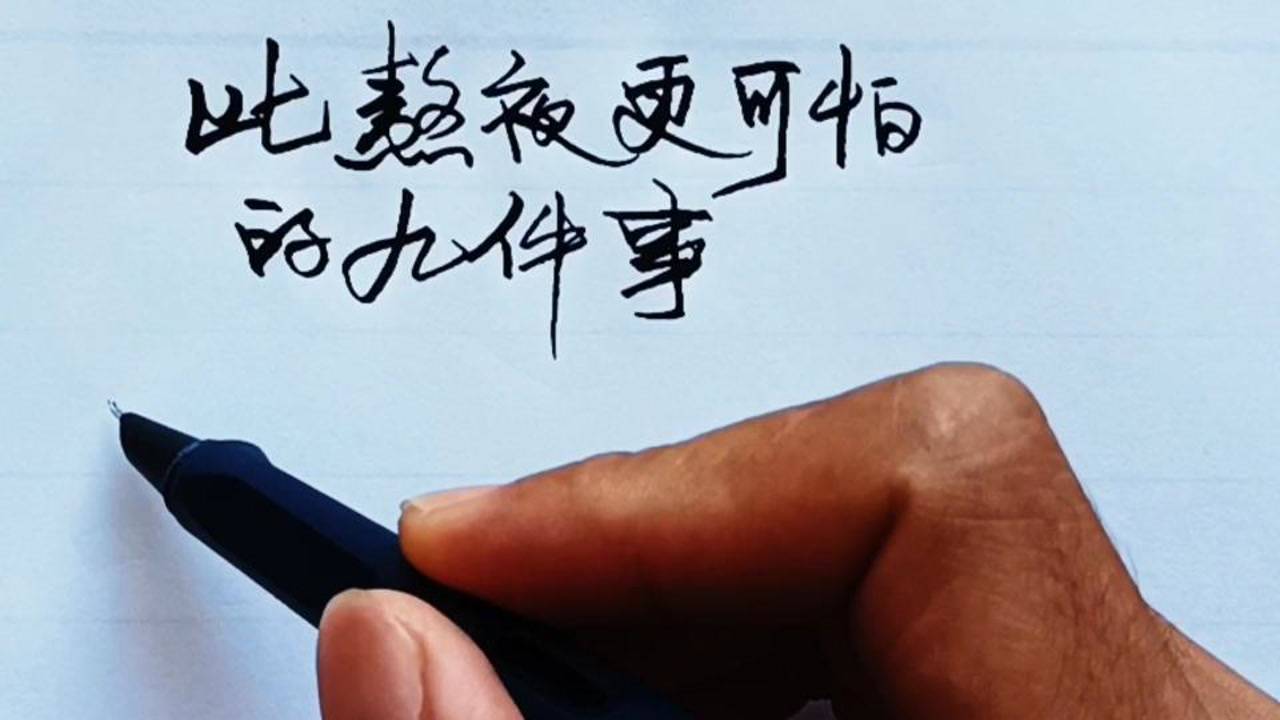 比熬夜更可怕
的九件事